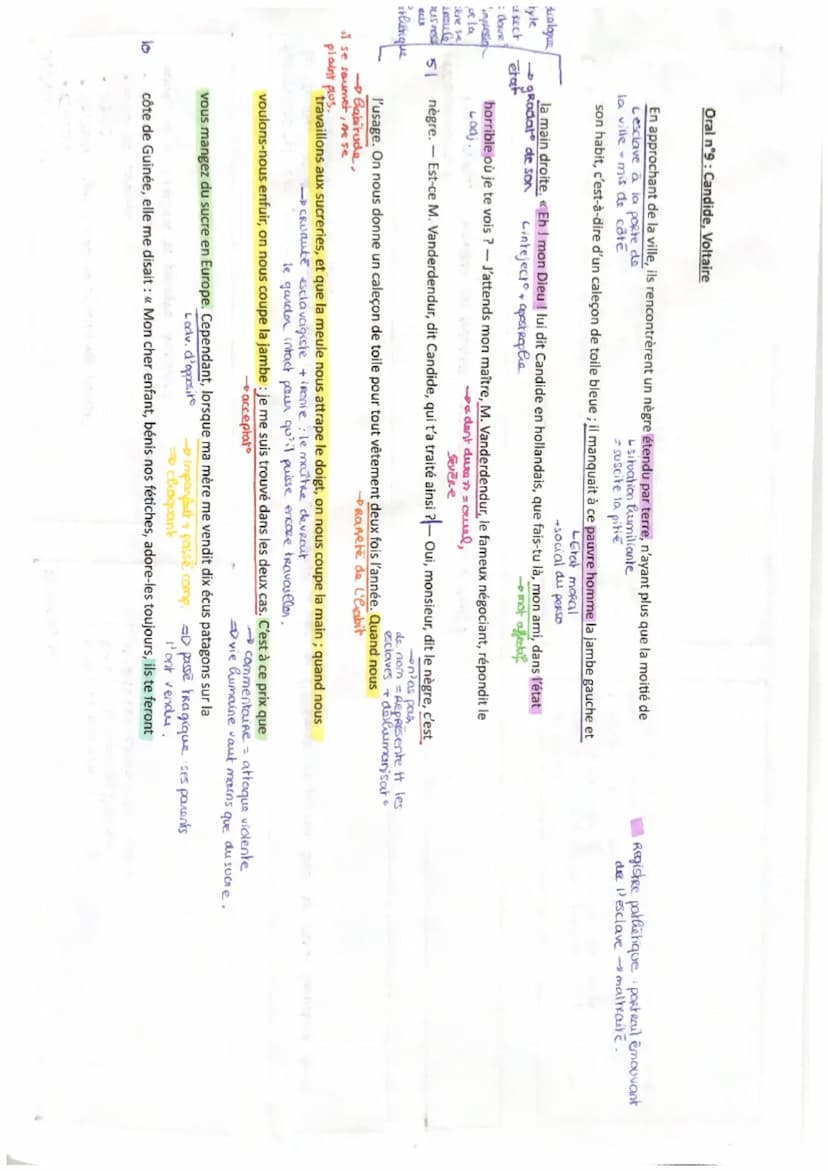 Oral n°9 : Candide, Voltaire
En approchant de la ville, ils rencontrèrent un nègre étendu par terre, n'ayant plus que la moitié de
↳ esclave à la porte de
la ville = mis de côté
↳ situation humiliante
= suscite la pitié
Registre pathétique : portrait émouvant
de l'esclave → maltraité.
son habit, c'est-à-dire d'un caleçon de toile bleue ; il manquait à ce pauvre homme la jambe gauche et
↳ état moral
+ social du perso
dialogue
style
direct
la main droite. « Eh ! mon Dieu ! lui dit Candide en hollandais, que fais-tu là, mon ami, dans l'état
→ gradat° de son
état
↳ interject° + apostrophe
→ mot affectif
horrible où je te vois ? — J'attends mon maître, M. Vanderdendur, le fameux négociant, répondit le
↳ adj.
→ a dent dur = cruel,
sévère
5
nègre. — Est-ce M. Vanderdendur, dit Candide, qui t'a traité ainsi ? — Oui, monsieur, dit le nègre, c'est
→ n'as pas
de nom = représente tt les
esclaves + déshumanisat°
l'usage. On nous donne un caleçon de toile pour tout vêtement deux fois l'année. Quand nous
→ habitude,
il se soumet, ne se
plaint plus.
→ rareté de l'habit
travaillons aux sucreries, et que la meule nous attrape le doigt, on nous coupe la main ; quand nous
→ cruauté esclavagiste + ironie : le maître devrait
le garder intact pour qu'il puisse encore travailler.
voulons-nous enfuir, on nous coupe la jambe : je me suis trouvé dans les deux cas. C'est à ce prix que
→ acceptat°
→ commentaire = attaque violente
⇒ vie humaine vaut moins que du sucre.
vous mangez du sucre en Europe. Cependant, lorsque ma mère me vendit dix écus patagons sur la
↳ adv. d'opposit°
→ imparfait + passé comp.
⇒ choquant
⇒ passé tragique : ses parents
l'ont vendu.
10
côte de Guinée, elle me disait : « Mon cher enfant, bénis nos fétiches, adore-les toujours, ils te feront